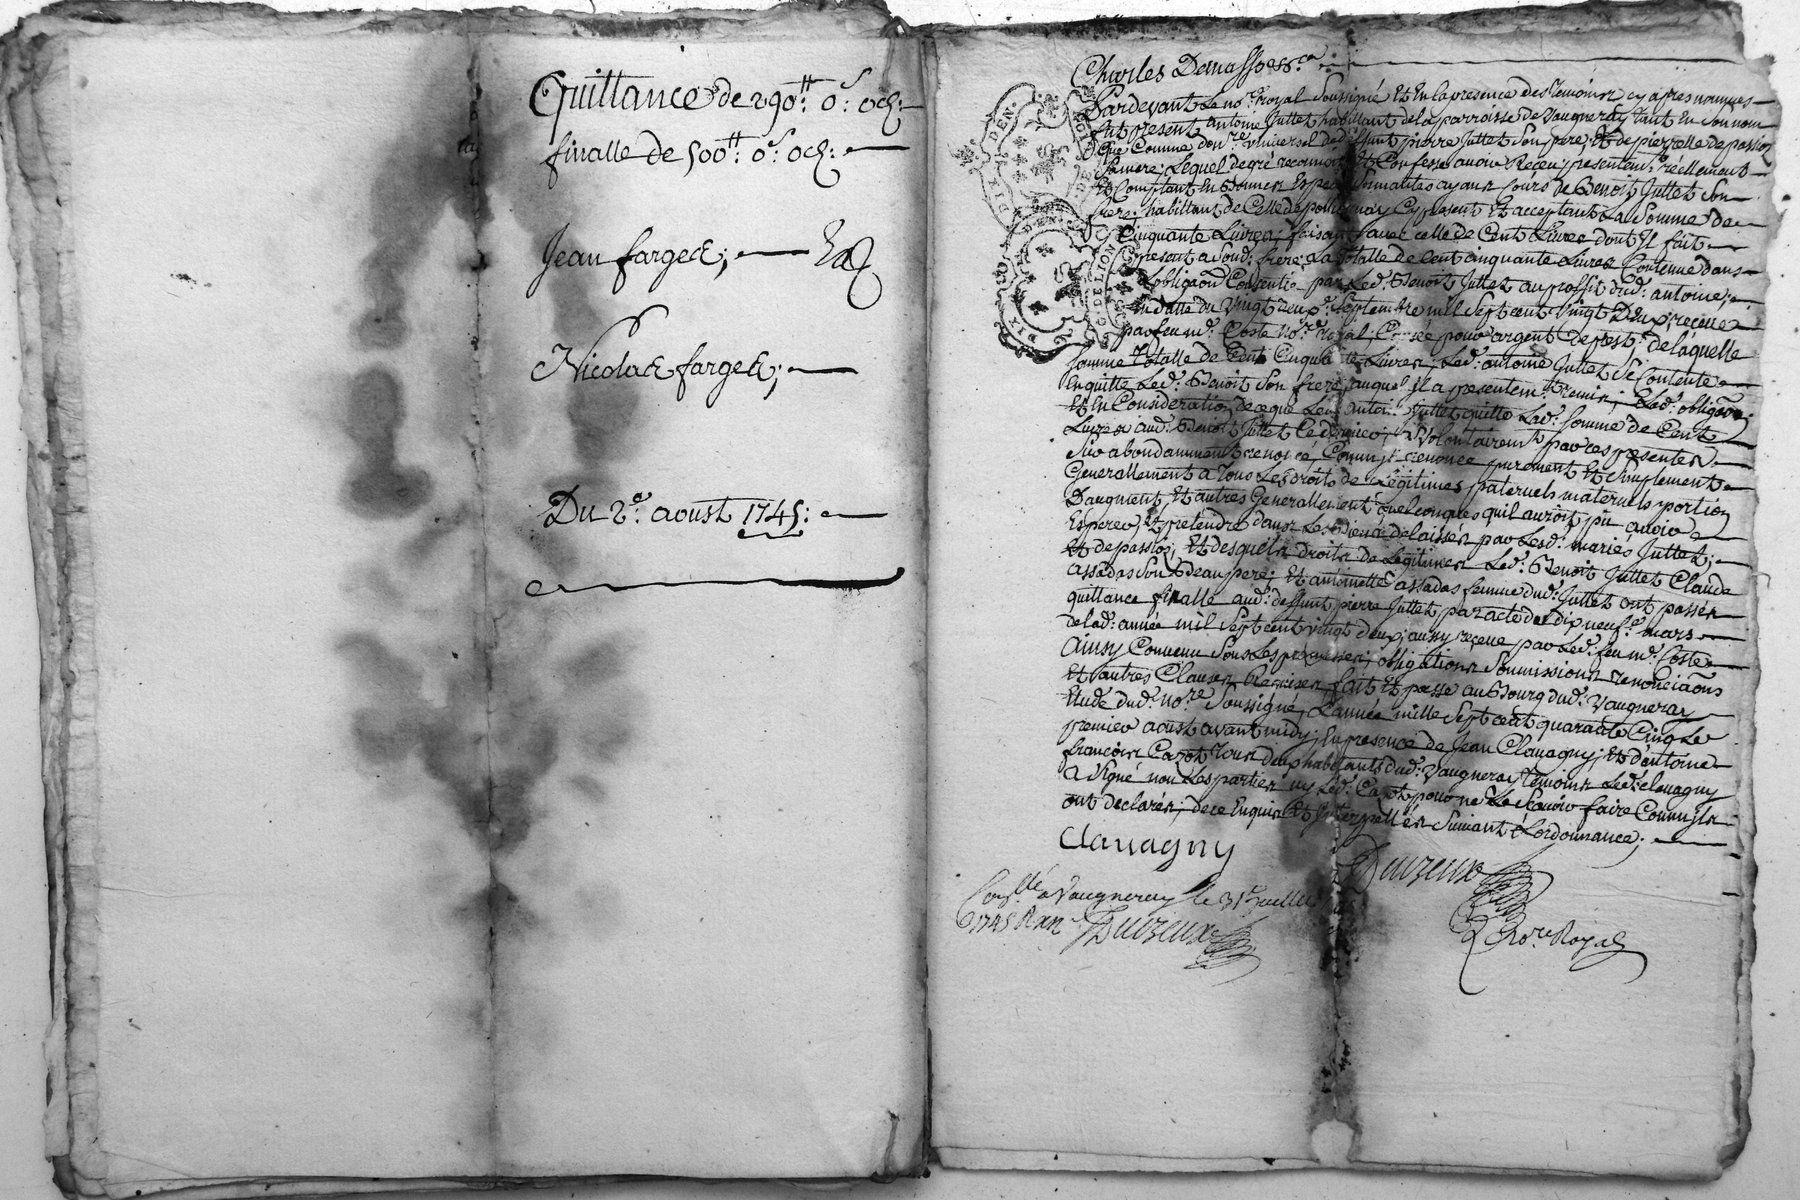 Quittance de 290tt: 0s: 0ch:
finalle de 500tt: 0s: 0ch:
Jean farges;
Nicolas farges;
Du 2e: aoust 1745:
Charles
Pardevant le nore: royal soussigné Et En la presence des temoins cy apres nommes
fut present antoine Juttet habittant de la parroisse de Vaugneray tant En son nom
que comme donre: universel de deffunt pierre Juttet son pere, Et de pierrette depassio
sa mere; Lequel de gré reconnoit Et Confesse avoir Receu presentemt: réellement
Et Comptant En bonnes Especes ayans cours de Benoit Juttet son
frere habittant de Celle de Cy present Et acceptant La somme de
Cinquante Livres; faisant avec celle de Cent Livres dont Il fait
present a sond: frere; La totalle de Cent cinquante Livres Contenue dans
Lobligaon Consentie par Led: Benoit Juttet au proffit dud: antoine;
En datte du Vingt septembre mil sept cent vingt Deux receue
par feu me: Coste nore: royal, pour argent de prest: de laquelle
somme totalle de Cent Cinquante Livres, Led: antoine Juttet se Contente
En quitte Led: Benoit son frere, auquel jl a presentemt: remis Lad: obligaon
Et En Consideration de ce que Led: antoine Juttet quitte Lad: somme de Cent
Livres aud: Benoit Juttet Ce dernier, Volontairemt: par ces presentes
abondamment renoncé, Comm'jl renonce purement Et simplement
Generallement a Tous Les droits de Legitimes paternels maternels portion
Daugment, Et autres Generallement quelconques quil auroit pû avoir
Esperer Et pretendre dans Les Biens delaissés par Lesd: mariés Juttet;
Et depassio; Et desquels droits de Legitimes Led: Benoit Juttet Claude
assadas son Beaupere; Et antoinette assadas femme dud: Juttet ont passés
quittance finalle aud: deffunt pierre Juttet par acte du dix neufe: mars
de lad: année mil sept cent vingt deux; aussy receue par Led: feu me: Coste
Ainsy Convenu sous Les promesses; obligations soumissions renonciaons
Et autres Clauses fait Et passé au Bourg dud: Vaugneray
Etude dud: nore: soussigné, L'année mille sept cent quarante Cinq Le
premier aoust avant midy; En presence de Jean Clavagny; Et d'antoine
françois Cazot tous deux habitants dud: Vaugneray temoins Led: clavagny
a signé non Les parties ny Led: Cazot pour ne Le scavoir faire Comm'jls
ont declarés; de ce Enquis Et Interpellés suivant L'ordonnance;
Clavagny
Duizeux
Conllé a Vaugneray le 31e Juillet
1745 Duizeux
Nore Royal